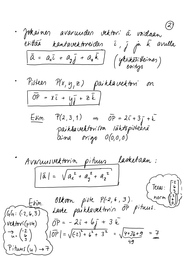 ②
• Jokainen avaruuden vektori ā voidaan
esittää kantavektoreiden ī, j̄ ja k̄ avulla
ā = aₓī + aᵧj̄ + a_z k̄ (yksikäsitteinen)
• Pisteen P(x,y,z) paikkavektori on
OP = xī + yj̄ + zk̄
Esim P(2,3,1) → OP = 2ī + 3j̄ + k̄
paikkavektorin lähtöpisteenä
aina origo O(0,0,0)
• Avaruusvektorin pituus lasketaan:
Esim Olkoon piste P(-2,6,3).
Laske paikkavektorin OP pituus.
OP = -2ī + 6j̄ + 3k̄
|OP| = √((-2)² + 6² + 3²) = √(4+36+9) = 7
49
(-2,6,3)
Pituus(u) → 7
norm